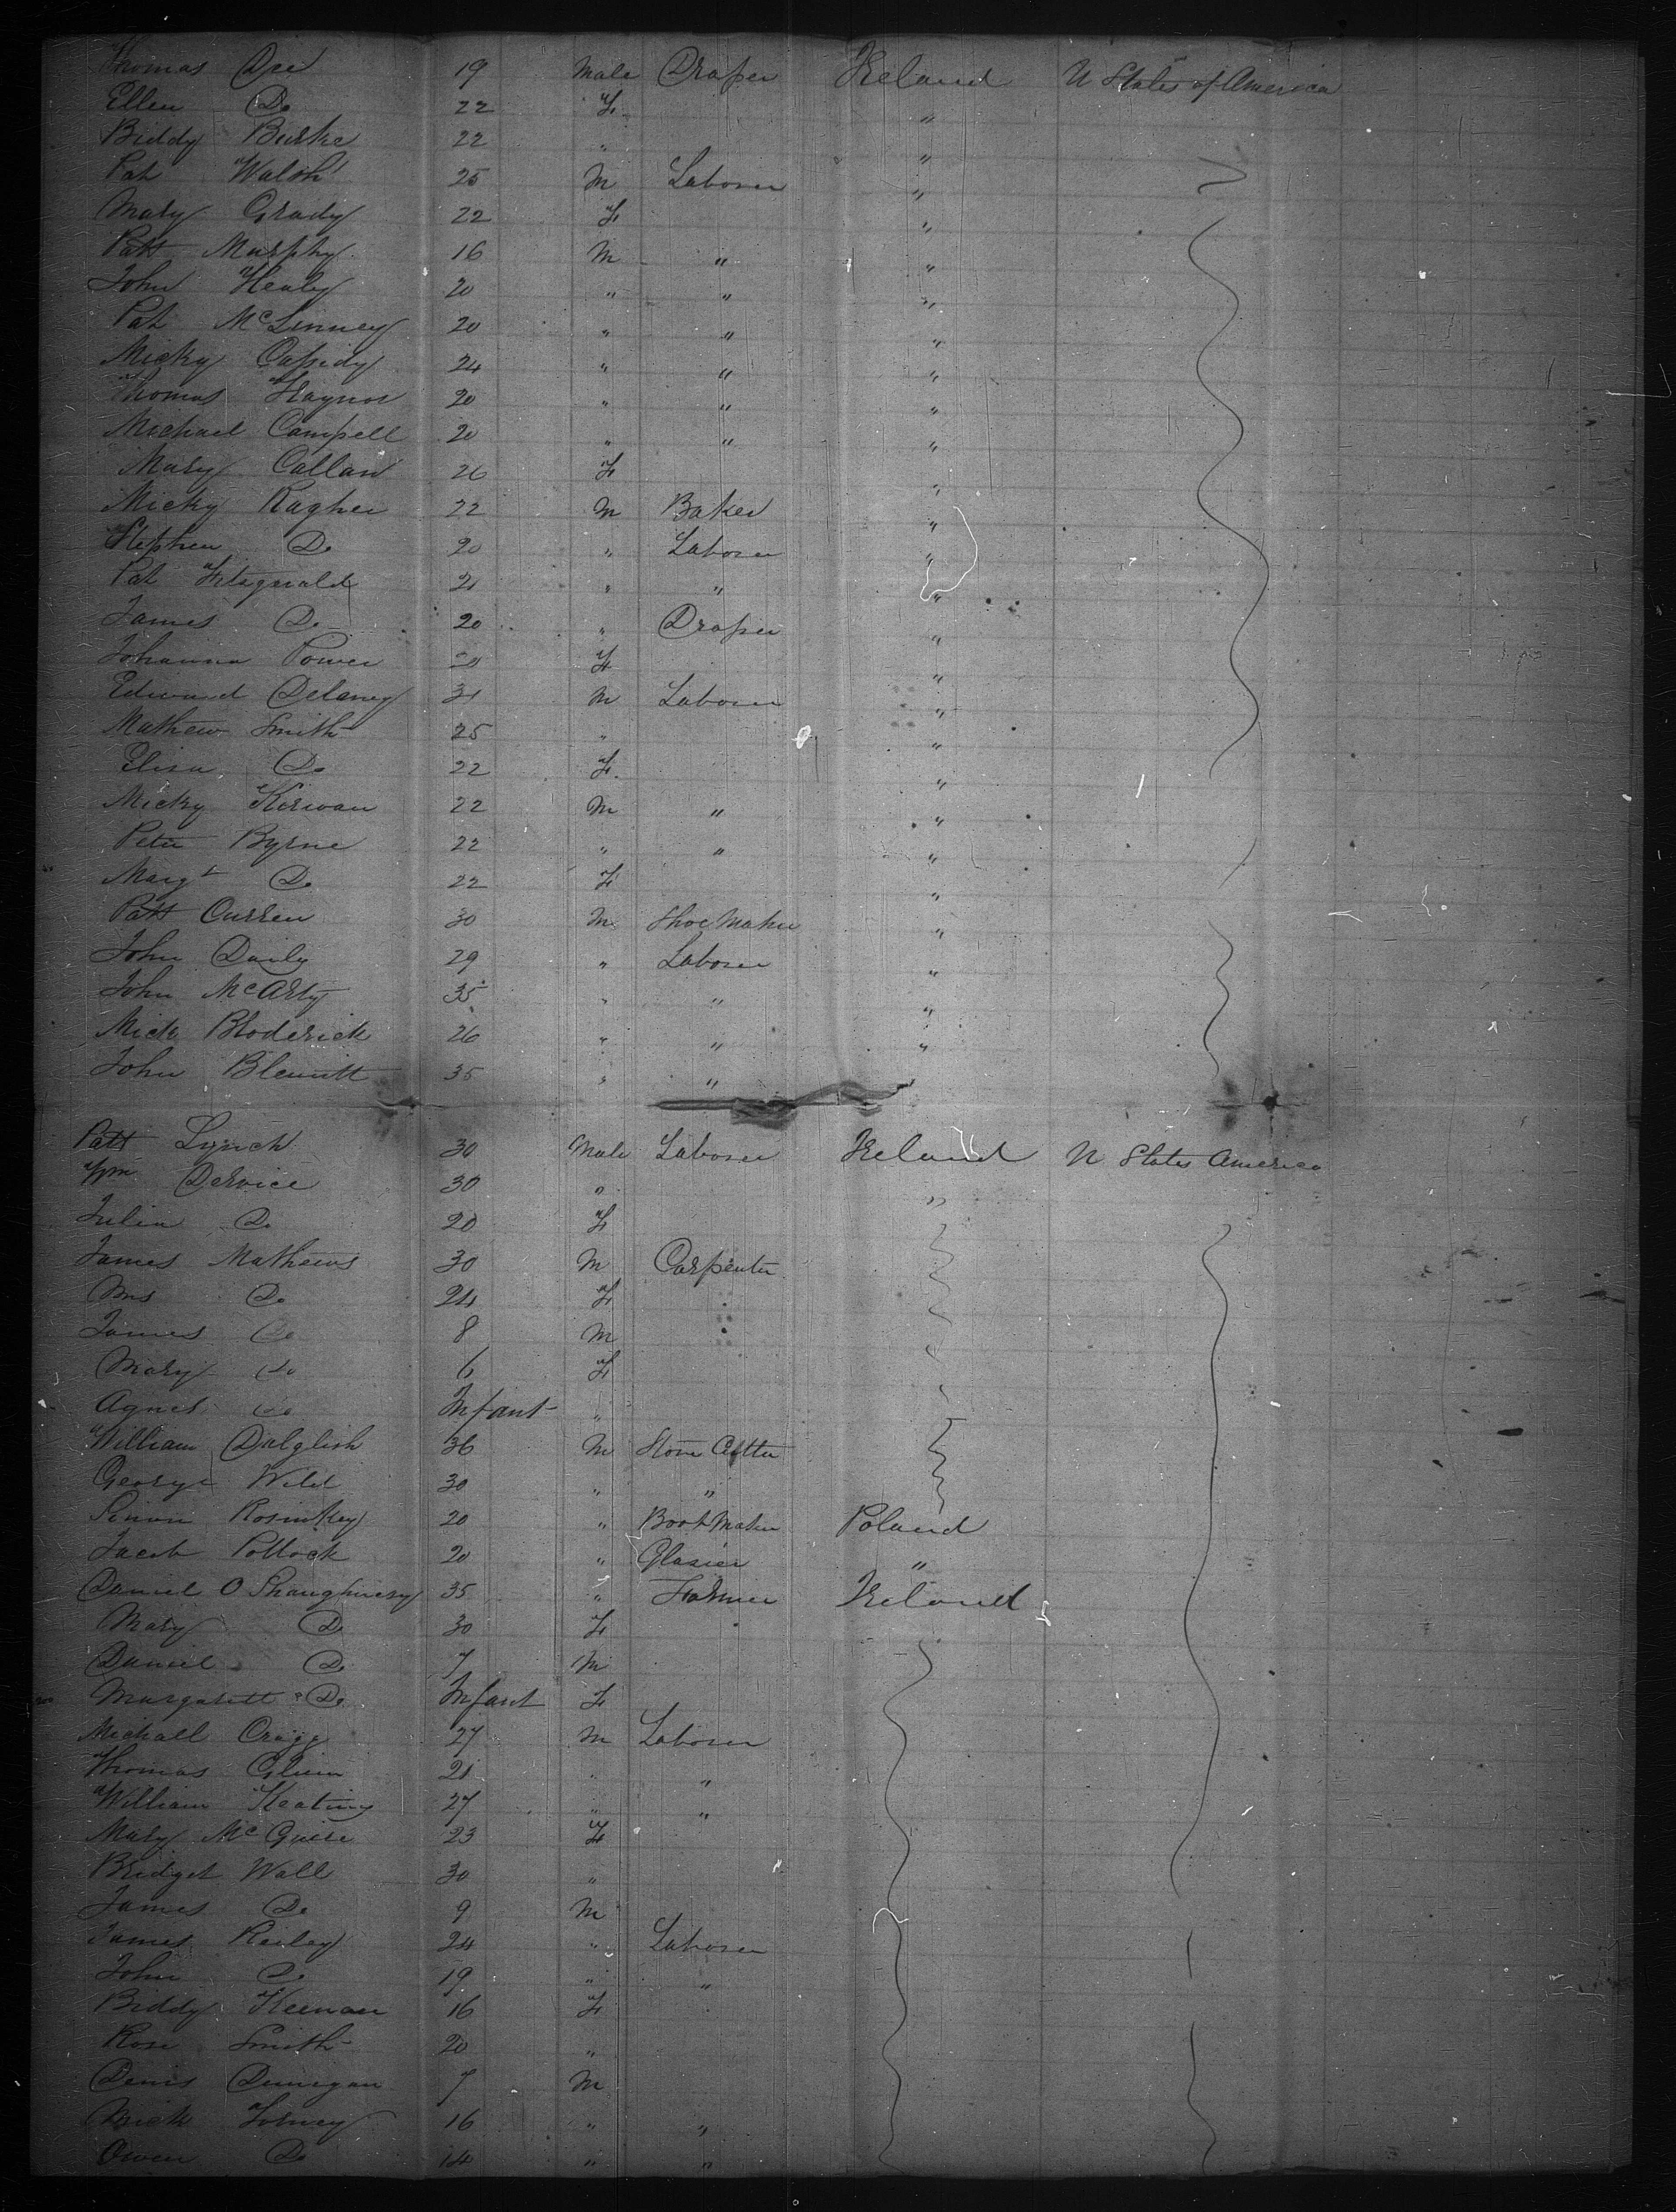 Thomas 19 Male Draper Ireland U States of America
Ellen Do 22 F "
Biddy Burke 22 " "
Pat Walsh 25 M Laborer "
Mary Grady 22 F "
Patt Murphy 16 M " "
John Healy 20 " " "
Pat McLinney 20 " " "
Micky Cassidy 24 " " "
Thomas Traynor 20 " " "
Michael Campell 20 " " "
Mary Callan 26 F "
Micky Ragher 22 M Baker "
Stephen Do 20 " Laborer "
Pat Fitzgerald 21 " " "
James Do 20 " Draper "
Johanna Power 20 F "
Edward Delaney 31 M Laborer "
Mathew Smith 25 " "
Elisa Do 22 F "
Micky Kirwan 22 M " "
Peter Byrne 22 " " "
Margt Do 22 F "
Patt Curren 30 M Shoe Maker "
John Daily 29 " Laborer "
John McArty 35 " " "
Mick Broderick 26 " " "
John Blewitt 35 " "
Patt Lynch 30 Male Laborer Ireland U States America
Wm Dervice 30 " "
Julia Do 20 F
James Mathews 30 M Carpenter
Mrs Do 24 F
James Do 8 M
Mary Do 6 F
Agnes Do Infant "
William Dalglish 36 M Stone Cutter
George Wild 30 " "
Simon Rosinkey 20 " Boot Maker Poland
Jacob Pollock 20 " Glasier "
Daniel O Shaughnesy 35 " Farmer Ireland
Mary Do 30 F
Daniel Do 7 M
Margarett Do Infant F
Michall Cragg 27 M Laborer
Thomas Glinn 21 " "
William Keating 27 " "
Mary McGuire 23 F
Bridget Wall 30 "
James Do 9 M
James Reiley 24 " Laborer
John Do 19 " "
Biddy Keenan 16 F
Rose Smith 20 "
Denis Dunigan 7 M
Mick Torney 16 " "
Owen Do 14 " "